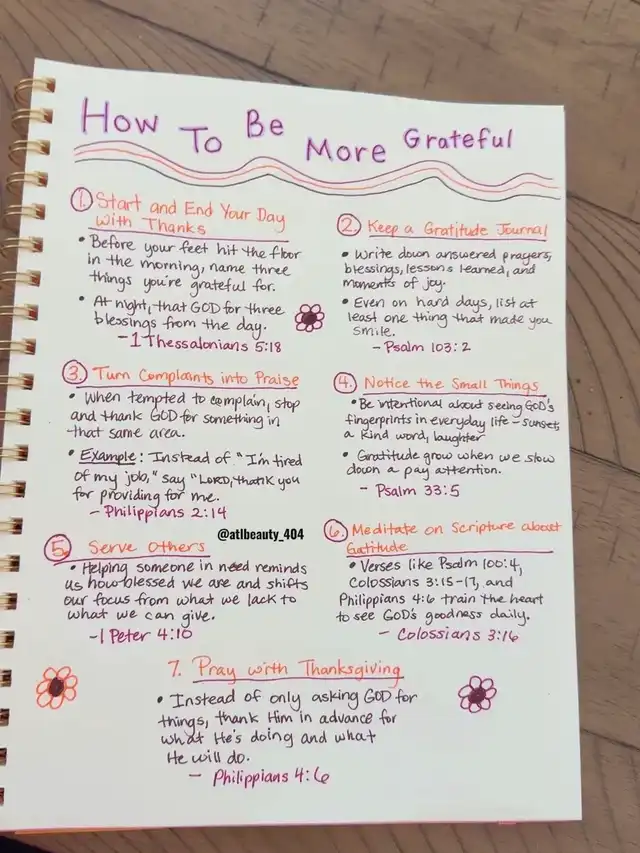 How To Be More Grateful
1. Start and End Your Day
with Thanks
• Before your feet hit the floor
in the morning, name three
things you're grateful for.
• At night, that GOD for three
blessings from the day.
-1 Thessalonians 5:18
2. Keep a Gratitude Journal
• Write down answered prayers,
blessings, lessons learned, and
moments of joy.
• Even on hard days, list at
least one thing that made you
smile.
- Psalm 103:2
3. Turn Complaints into Praise
• When tempted to complain, stop
and thank GOD for something in
that same area.
• Example: Instead of "I'm tired
of my job," say "LORD, thank you
for providing for me.
- Philippians 2:14
4. Notice the Small Things
• Be intentional about seeing GOD's
fingerprints in everyday life - sunset,
a kind word, laughter
• Gratitude grow when we slow
down a pay attention.
- Psalm 33:5
@atlbeauty_404
5. Serve Others
• Helping someone in need reminds
us how blessed we are and shifts
our focus from what we lack to
what we can give.
-1 Peter 4:10
6. Meditate on Scripture about
Gatitude
• Verses like Psalm 100:4,
Colossians 3:15-17, and
Philippians 4:6 train the heart
to see GOD's goodness daily.
- Colossians 3:16
7. Pray with Thanksgiving
• Instead of only asking GOD for
things, thank Him in advance for
what He's doing and what
He will do.
- Philippians 4:6